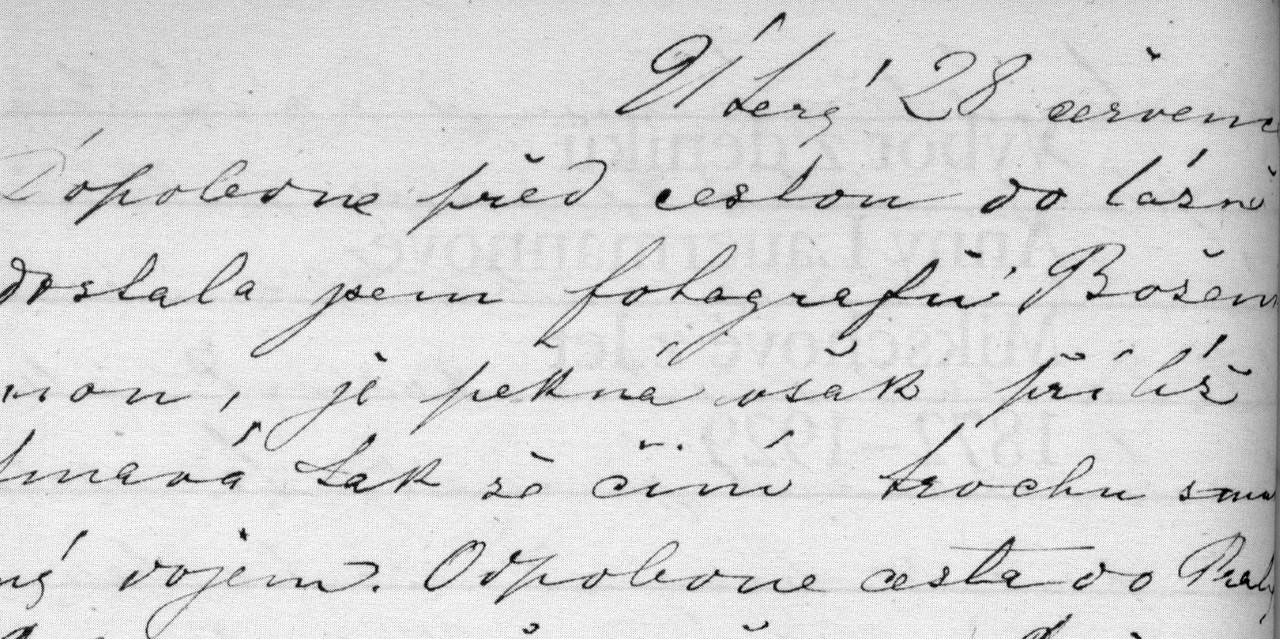 Úterý 28 červen
Dopoledne před cestou do lázně
dostala jsem fotografii Božen
inou, je pěkná však příliš
tmavá tak že činí trochu smu
ný dojem. Odpoledne cesta do Prahy